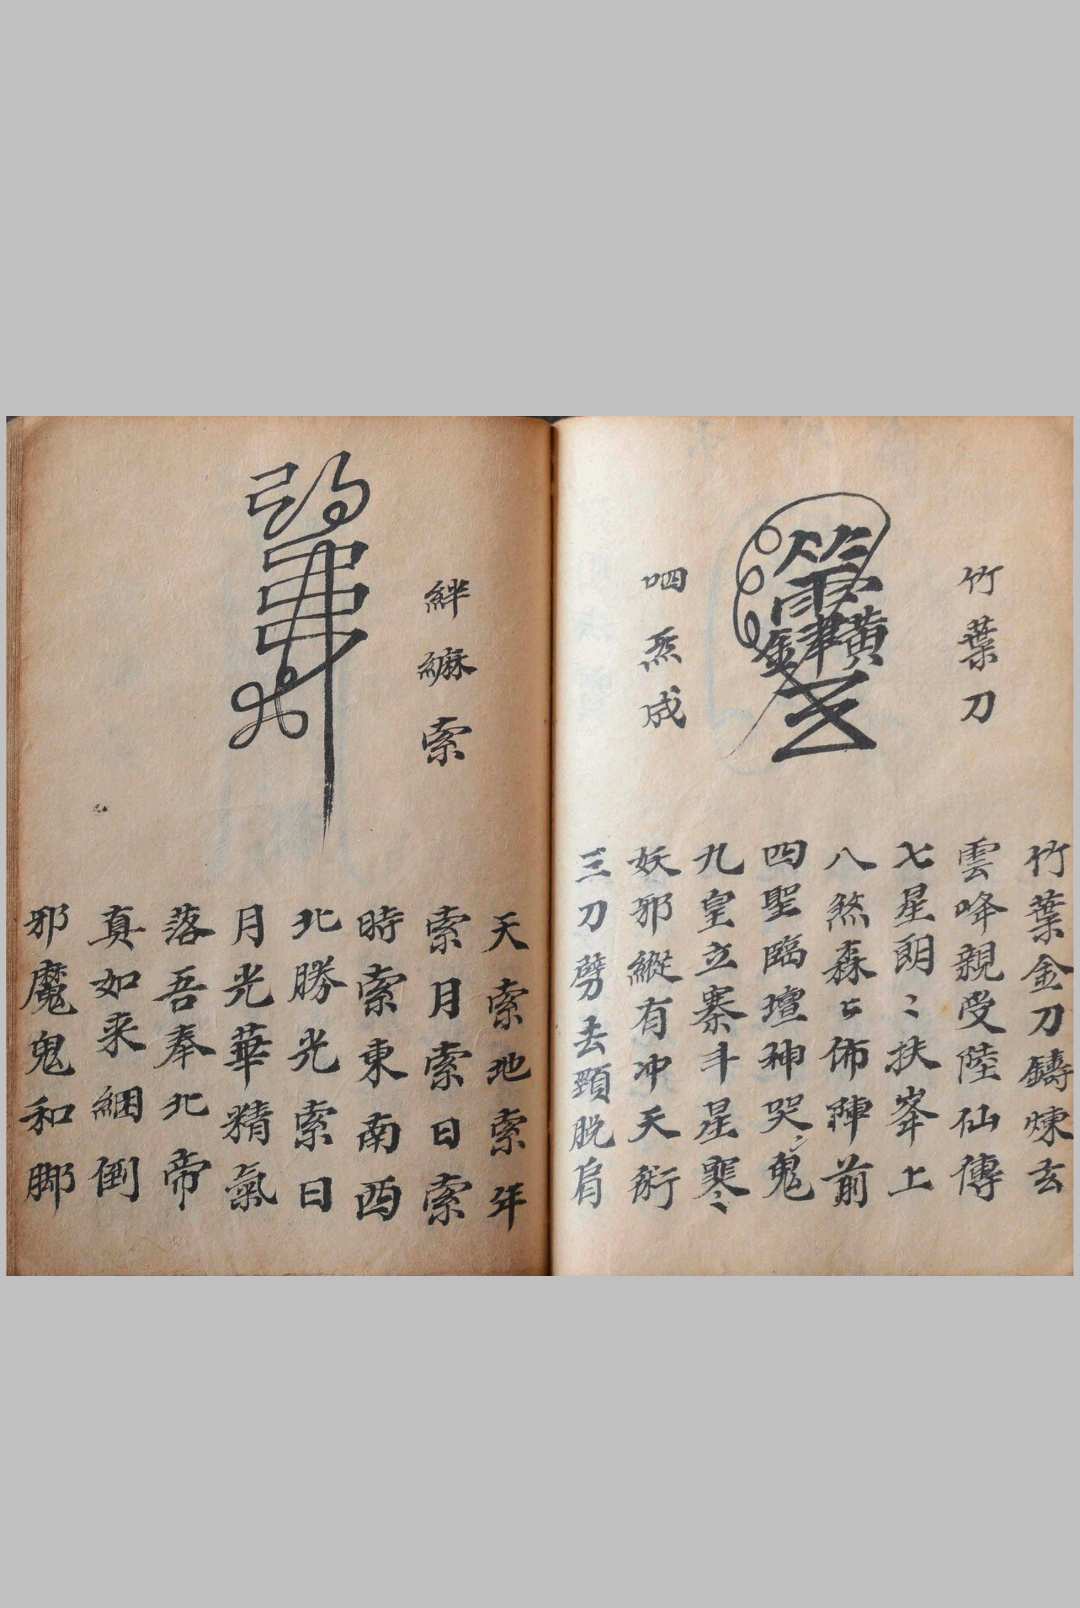 竹葉刀
呬炁成
竹葉金刀鑄煉玄
雲峰親受陸仙傳
七星朗〻扶峯上
八煞森〻佈陣前
四聖臨壇神哭〻鬼
九皇立寨斗星寒〻
妖邪縱有冲天術
三刀劈去頸脫肩
絆索
天索地索年
索月索日索
時索東南西
北勝光索日
月光華精氣
落吾奉北帝
真如来綑倒
邪魔鬼和脚